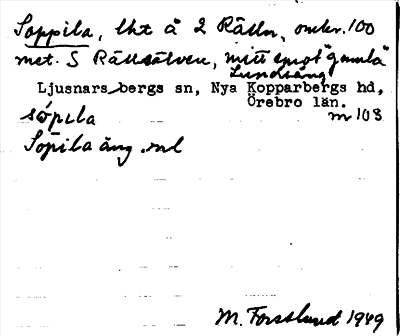 Soppila, lht å 2 Rälln, omkr. 100
met. S Rällsälven, mitt emot "gamla"
Lundsäng
Ljusnarsbergs sn, Nya Kopparbergs hd,
Örebro län.
sópila m 103
Sopila äng . md
M. Forsslund 1949